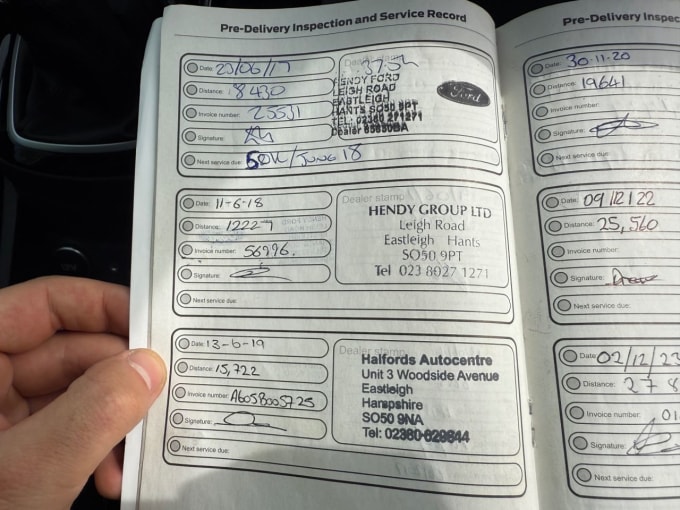 Pre-Delivery Inspection and Service Record
Date: 23/06/17
Distance: 8430
Invoice number: 25531
Signature:
Next service due: 50K/JUNE 18
Dealer stamp
HENDY FORD
LEIGH ROAD
EASTLEIGH
HANTS SO50 9PT
TEL: 02380 271271
Dealer
Ford
Date: 11-6-18
Distance: 12227
Invoice number: 56996.
Signature:
Next service due:
Dealer stamp
HENDY GROUP LTD
Leigh Road
Eastleigh Hants
SO50 9PT
Tel 023 8027 1271
Date: 13-6-19
Distance: 15,722
Invoice number: A605B005725
Signature:
Next service due:
Dealer stamp
Halfords Autocentre
Unit 3 Woodside Avenue
Eastleigh
Hampshire
SO50 9NA
Tel: 02380 629844
Pre-Delivery Inspec
Date: 30.11.20
Distance: 19641
Invoice number:
Signature:
Next service due:
Date: 09/12/22
Distance: 25,560
Invoice number:
Signature:
Next service due:
Date: 02/12/23
Distance: 278
Invoice number: 01
Signature:
Next service due: